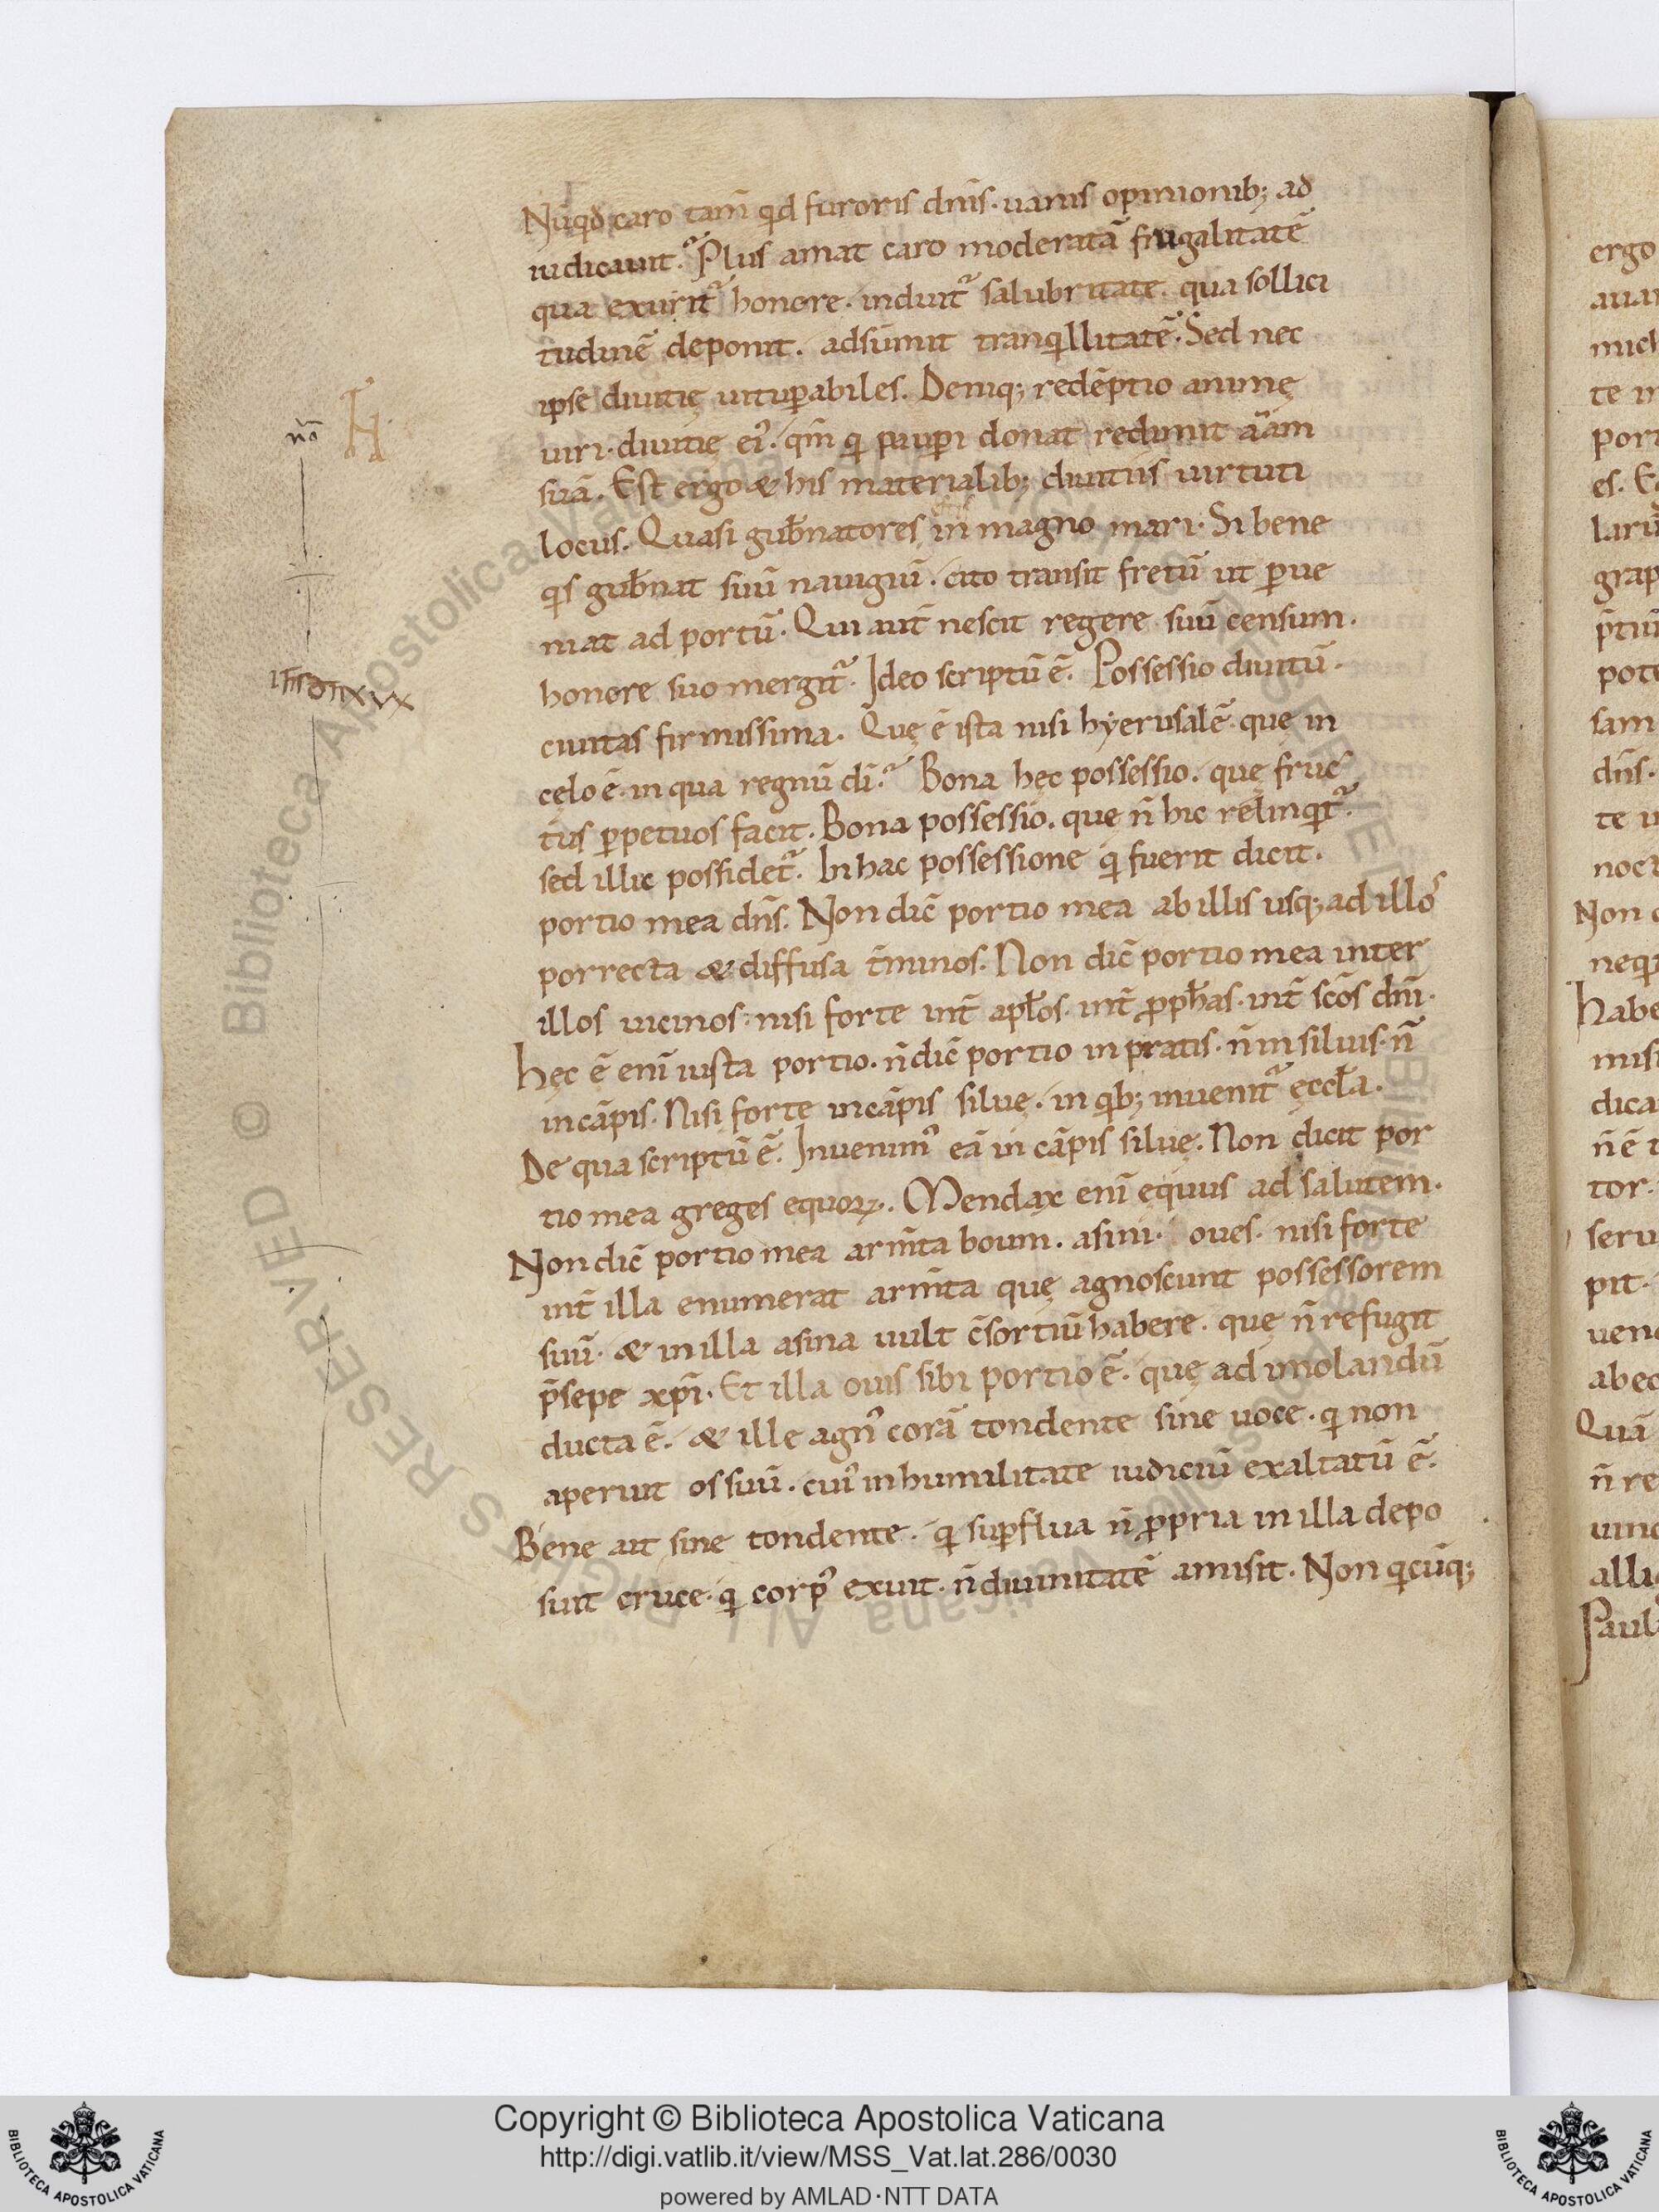 Nūqd caro tam̄ qd furoris dn̄s. uanis opinionib; ad
iudicauit. Plus amat caro moderatā frugalitatē
qua exuritr honore. induitr salubritate. qua sollici
tudinē deponit. adsumit tranqllitatē. Sed nec
ipse diuitię uitupabiles. Deniq; redēptio animę
uiri. diuitię ei'. qm̄ q paupi donat redimit aām
suā. Est ergo & his materialib; diuitiis uirtuti
locus. Quasi gubn̄atores in magno mari. Si bene
qs gubn̄at suū nauigiū. cito transit fretū ut pue
niat ad portū. Qui aut̄ nescit regere suū censum.
honore suo mergitr. Ideo scriptū ē. Possessio diuitū.
ciuitas firmissima. Quę ē ista nisi hyerusalē. que in
cęlo ē. in qua regnū dī. Bona hęc possessio. quę fruc
tus ppetuos facit. Bona possessio. que n̄ hic relinqtr.
sed illic possidetr. In hac possessione q fuerit dicit.
portio mea dn̄s. Non dic̄ portio mea ab illis usq; ad illos
porrecta & diffusa t̄minos. Non dic̄ portio mea inter
illos uicinos. nisi forte int̄ apłos. int̄ pphas. int̄ scōs dn̄i.
hęc ē enī iusta portio. n̄ dic̄ portio in pratis. n̄ in siluis. n̄
in cāpis. Nisi forte in cāpis siluę. in qb; inuenitr ęccła.
De qua scriptū ē. Inuenim' eā in cāpis siluę. Non dicit por
tio mea greges equoꝝ. Mendax enī equus ad salutem.
Non dic̄ portio mea arm̄ta boum. asini. oues. nisi forte
int̄ illa enumerat arm̄ta quę agnoscunt possessorem
suū. & in illa asina uult c̄sortiū habere. quę n̄ refugit
p̄sepe xp̄i. Et illa ouis sibi portio ē. quę ad imolandū
ducta ē. & ille agn' corā tondente sine uoce. q non
aperuit os suū. cui' in humilitate iudiciū exaltatū ē.
Bene ait sine tondente. q supflua n̄ ppria in illa depo
suit cruce. q corp' exuit. n̄ diuinitatē amisit. Non qcūq;
nō
ergo
te
port
es.
laru
grap
pote
sam
dn̄s.
te
noct
Non
neq
habe
misi
dica
n̄ ē
tor.
seru
pit.
abeo
Quā
n̄ re
uinc
Paul
© Biblioteca Apostolica Vaticana ALL RIGHTS RESERVED
© Biblioteca Apostolica Vaticana ALL RIGHTS RESERVED
Copyright © Biblioteca Apostolica Vaticana
http://digi.vatlib.it/view/MSS_Vat.lat.286/0030
powered by AMLAD·NTT DATA
BIBLIOTECA APOSTOLICA VATICANA
BIBLIOTECA APOSTOLICA VATICANA